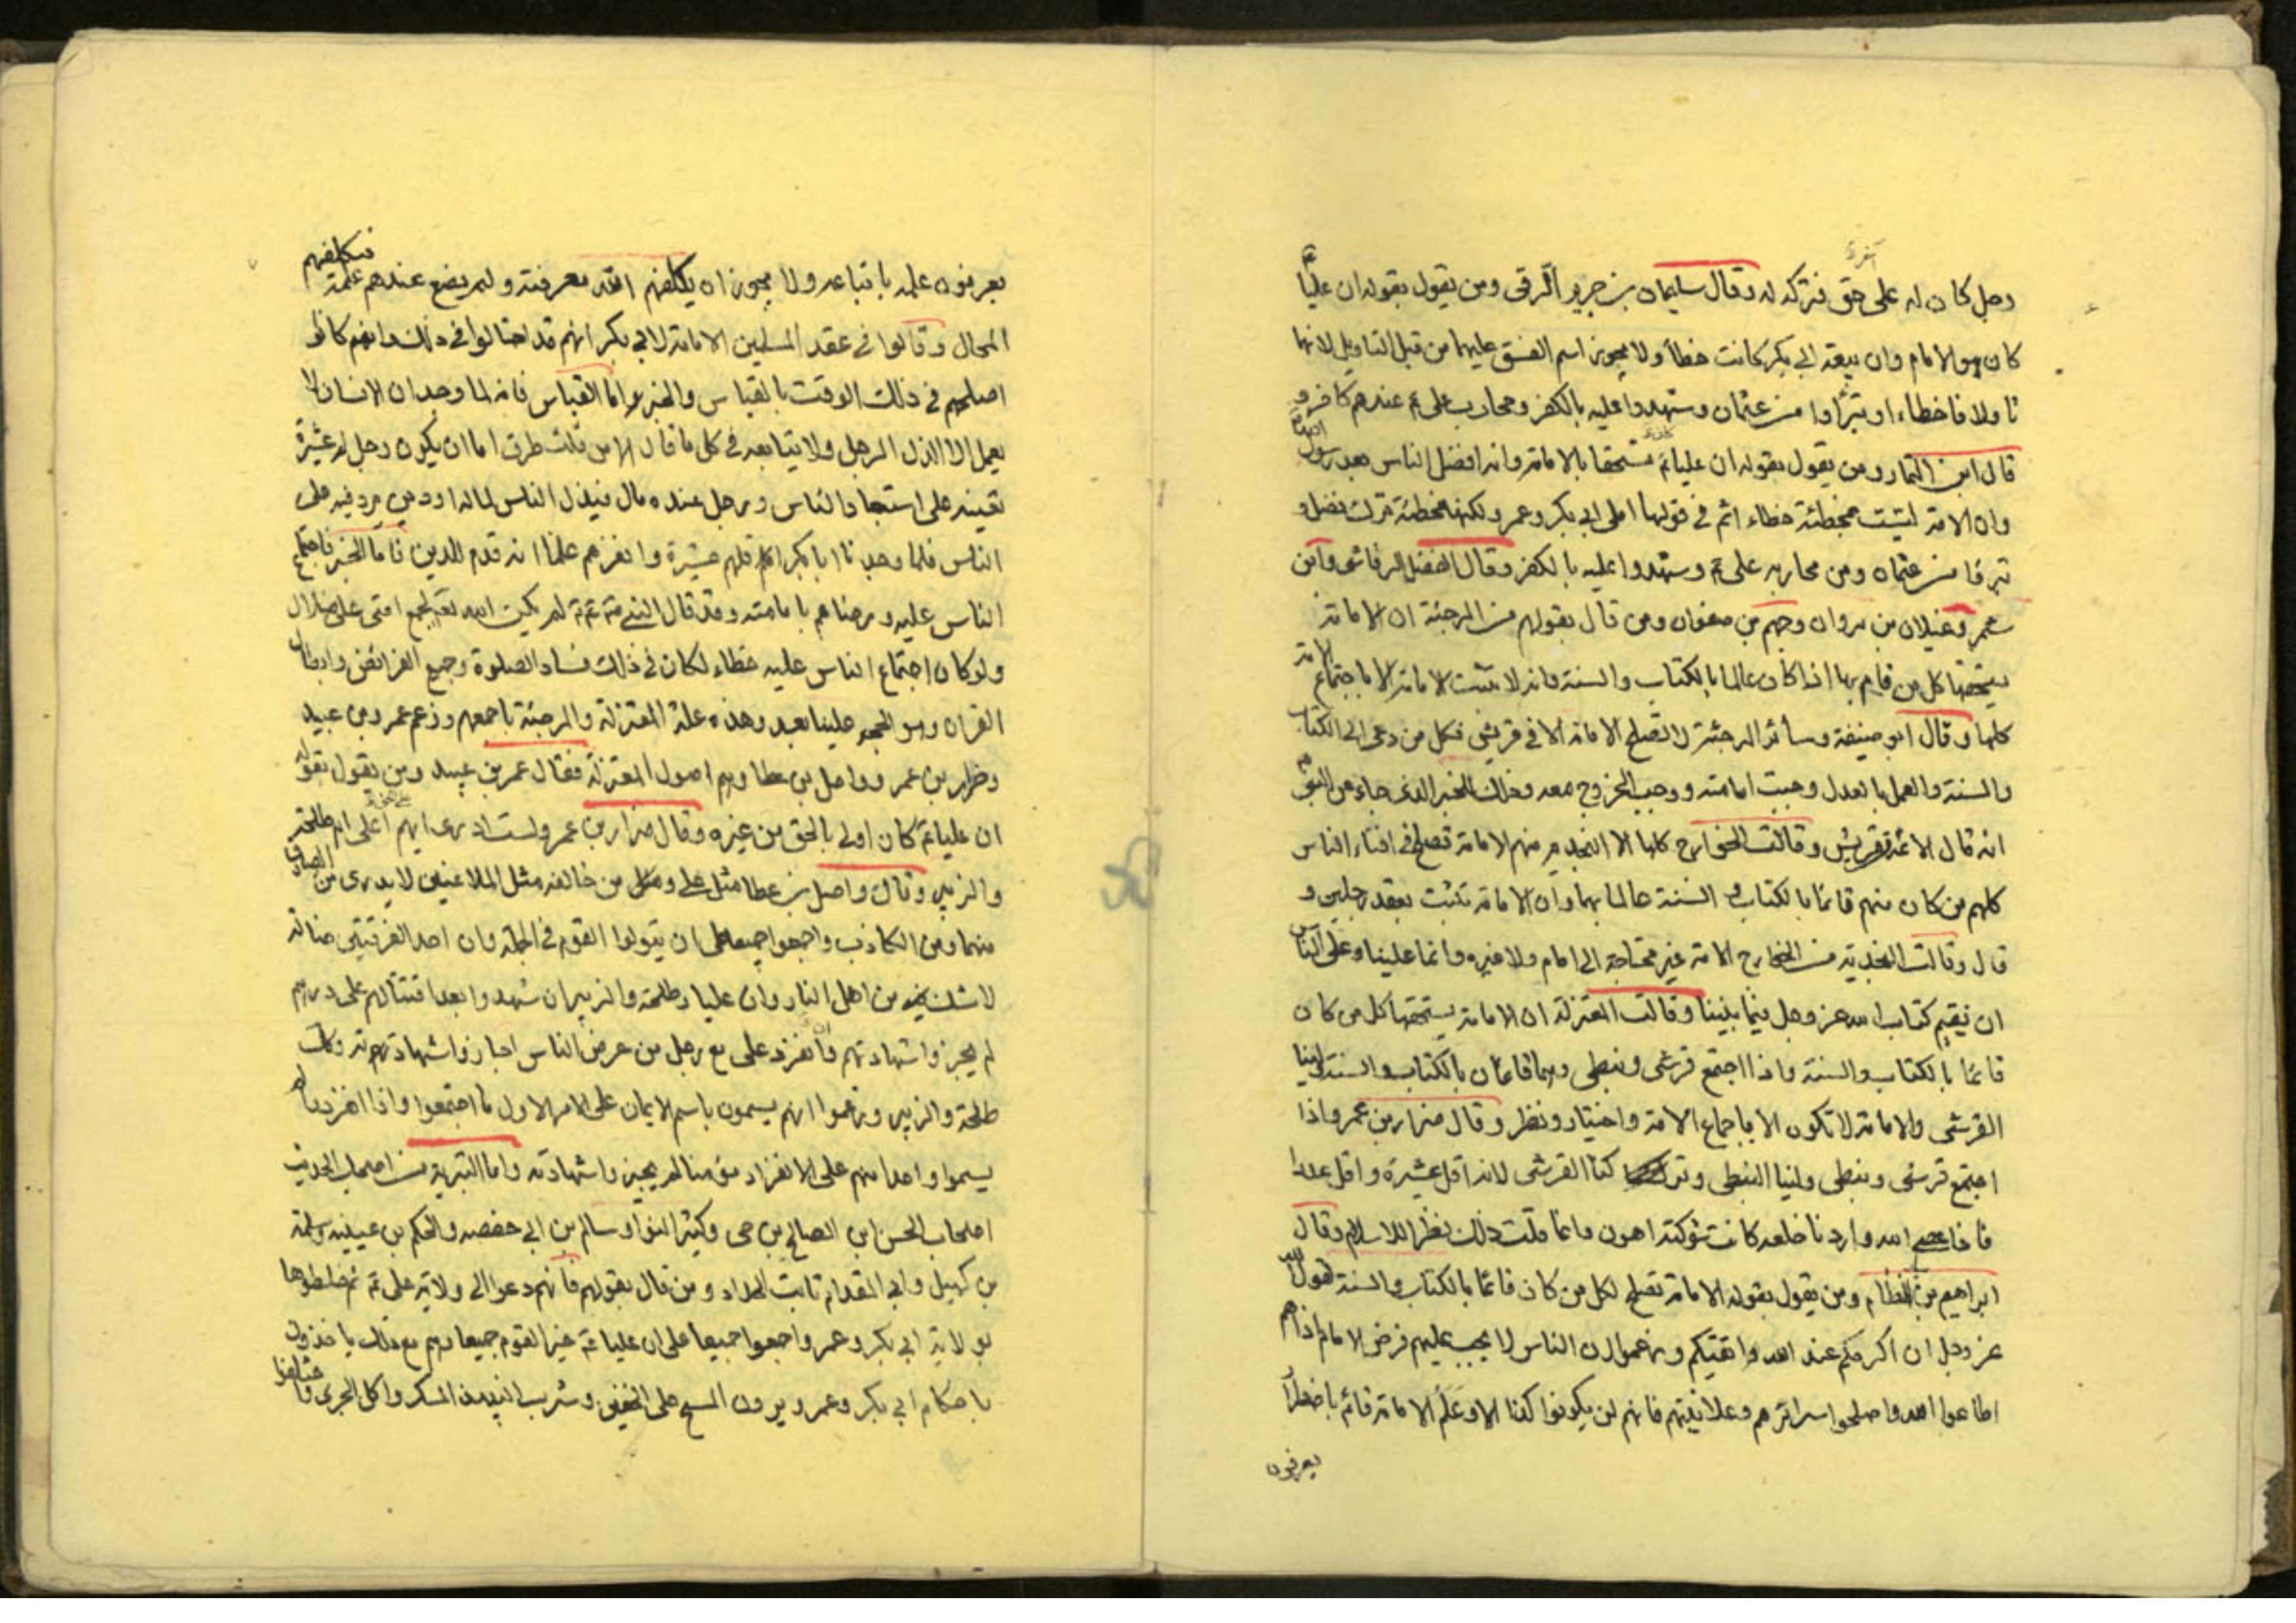 رجل كان له على حق فتركه له وقال سليمان بن جرير الرقى ومن يقول بقوله ان عليا
كان هو الامام وان بيعة ابى بكر كانت خطأ ولا يجوز اسم الفسق عليهما من قبل التاويل لانهما
تاولا فاخطاء او تبرأوا من عثمان وشهدوا عليه بالكفر ومحارب على ع عندهم كافر و
قال ابن التمار ومن يقول بقوله ان عليا ع كان مستحقا بالامامة وانه افضل الناس بعد رسول الله
وان الامة ليست مخطئة خطاء اثم فى توليها ابى بكر وعمر ولكنها مخطئة بترك فضل و
تبرؤا من عثمان ومن محاربه على ع وشهدوا عليه بالكفر وقال الفضل الرقاشى وابن
شمر وغيلان بن مروان وجهم بن صفوان ومن قال بقولهم من المرجئة ان الامامة
يستحقها كل من قام بها اذا كان عالما بالكتاب والسنة وانه لا تثبت الامامة الا باجتماع الامة
كلها وقال ابو حنيفة وسائر المرجئة لا تصلح الامامة الا فى قريش فكل من دعى الى الكتاب
والسنة والعمل بالعدل وجبت امامته ووجب الخروج معه وذلك للخبر الذى جاء عن النبى ص
انه قال الائمة من قريش وقالت الخوارج كلها الا النجدية منهم الامامة تصلح فى افناء الناس
كلهم من كان منهم قائما بالكتاب و السنة عالما بهما وان الامامة تثبت بعقد رجلين و
قال وقالت النجدية من الخوارج الامة غير محتاجة الى امام ولا غيره وانما علينا وعلى الناس
ان نقيم كتاب الله عز وجل فيما بيننا وقالت المعتزلة ان الامامة يستحقها كل من كان
قائما بالكتاب والسنة واذا اجتمع قرشى ونبطى وهما قائمان بالكتاب والسنة ولينا
القرشى والامامة لا تكون الا باجماع الامة واختيار ونظر وقال ضرار بن عمرو اذا
اجتمع قرشى ونبطى ولينا النبطى وتركنا القرشى لانه اقل عشيرة واقل عددا
فاذا عصى الله واردنا خلعه كانت شوكته اهون وانما قلت ذلك نظرا للاسلام وقال
ابراهيم بن النظام ومن يقول بقوله الامامة تصلح لكل من كان قائما بالكتاب والسنة لقول الله
عز وجل ان اكرمكم عند الله اتقيكم وزعموا ان الناس لا يجب عليهم فرض الامام اذا هم
اطاعوا الله واصلحوا سرائرهم وعلانيتهم فانهم لن يكونوا كذا الا وعلم الامامة قائم باضطرار
يعرفون
يعرفون علمه باتباعه ولا يجوز ان يكلفهم الله معرفته ولم يضع عندهم علمه فيكلفهم
المحال وقالوا فى عقد المسلمين الامامة لابى بكر انهم قد اصابوا فى ذلك وانهم كانوا
اصلحهم فى ذلك الوقت بالقياس والخبر واما القياس فانه لما وجد ان الانسان لا
يعمل الا الذل الرجل ولا يتابعه فى كل ما قال الا من ثلث طرق اما ان يكون رجل له عشيرة
تعينه على استعباد الناس ورجل عنده مال فيذل الناس لماله او دين برز فيه على
الناس فلما وجدنا ابا بكر اقلهم عشيرة وافقرهم علمنا انه قدم للدين فاما الخبر فاجتماع
الناس عليه ورضاهم بامامته وقد قال النبى لم يكن الله ليجمع امتى على ضلال
ولو كان اجتماع الناس عليه خطاء لكان فى ذلك فساد الصلوة وجميع الفرائض وابطال
القران وهو الحجة علينا بعد وهذه علة المعتزلة والمرجئة باجمعهم وزعم عمرو بن عبيد
وضرار بن عمر وواصل بن عطا وهم اصول المعتزلة فقال عمر بن عبيد ومن يقول بقوله
ان عليا ع كان اولى بالحق من غيره وقال ضرار بن عمر ولست ادرى ايهم اعلى ام طلحة
والزبير وقال واصل بن عطا مثل على ومثل من خالفه مثل الملاعنين لا يدرى من الصادق
منهما ومن الكاذب واجمعوا جميعا على ان يتولوا القوم فى الجملة وان احد الفرقتين ضالة
لا شك فيه من اهل النار وان عليا وطلحة والزبير ان شهدوا بعد اقتتالهم على درهم
لم يجيزوا شهادتهم وان انفرد على مع رجل من عرض الناس اجازوا شهادتهم وكذلك
طلحة والزبير وزعموا انهم يسمون باسم الايمان على الامر الاول ما اجتمعوا واذا انفردوا لم
يسموا واحدا منهم على الانفراد مؤمنا لم يجيزوا شهادته واما البترية من اصحاب الحديث
اصحاب الحسن ابن الصالح بن حى وكثير النوا وسالم بن ابى حفصه والحكم بن عيينه وسلمة
بن كهيل وابى المقدام ثابت الحداد ومن قال بقولهم فانهم دعوا الى ولاية على ع ثم خلطوها
بولاية ابى بكر وعمر واجمعوا جميعا على ان عليا ع خير القوم جميعا وهم مع ذلك ياخذون
باحكام ابى بكر وعمر ويرون المسح على الخفين وشرب النبيذ المسكر واكل الجرى